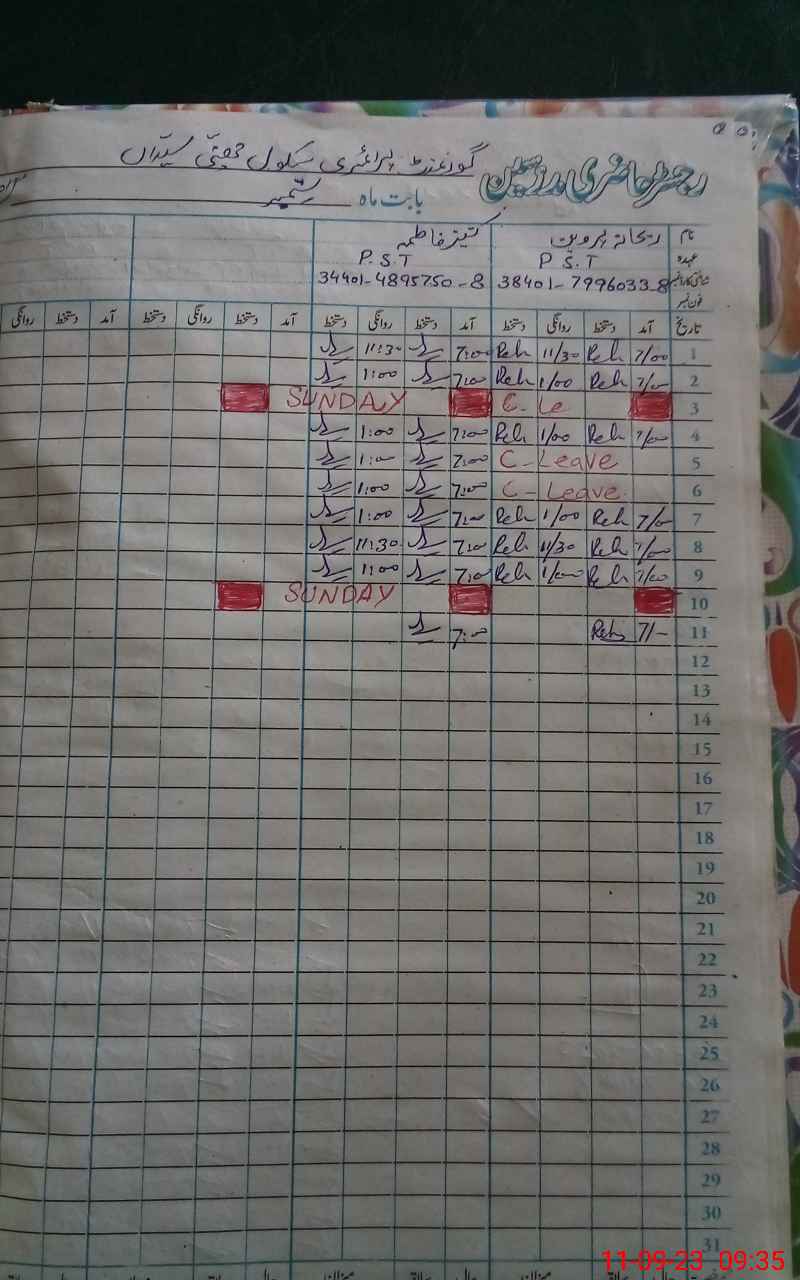 رجسٹر حاضری مدرسین گورنمنٹ پرائمری سکول سیّداں
بابت ماہ ستمبر
نام ریحانہ پروین کنیز فاطمہ
عہدہ P.S.T P.S.T
شناختی کارڈ نمبر 38401-7996033-8 34401-4895750-8
فون نمبر
تاریخ آمد دستخط روانگی دستخط آمد دستخط روانگی دستخط آمد دستخط روانگی دستخط آمد دستخط روانگی
1 7/00 Reh 11/30 Reh 7:00 11:30
2 7/00 Reh 1/00 Reh 7:00 1:00
3 C-Le SUNDAY
4 7/00 Reh 1/00 Reh 7:00 1:00
5 C-Leave 7:00 1:00
6 C-Leave 7:00 1:00
7 7/00 Reh 1/00 Reh 7:00 1:00
8 7/00 Reh 11/30 Reh 7:00 11:30
9 7/00 Reh 1/00 Reh 7:00 1:00
10 SUNDAY
11 7/- Reh 7:00
12
13
14
15
16
17
18
19
20
21
22
23
24
25
26
27
28
29
30
31
11-09-23 09:35